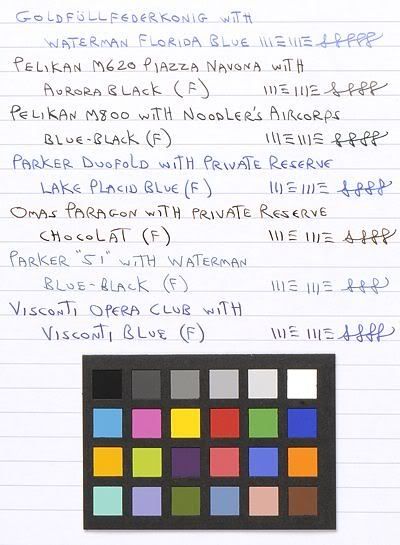 GOLDFÜLLFEDERKONIG WITH
WATERMAN FLORIDA BLUE
PELIKAN M620 PIAZZA NAVONA WITH
AURORA BLACK (F)
PELIKAN M800 WITH NOODLER'S AIRCORPS
BLUE-BLACK (F)
PARKER DUOFOLD WITH PRIVATE RESERVE
LAKE PLACID BLUE (F)
OMAS PARAGON WITH PRIVATE RESERVE
CHOCOLAT (F)
PARKER "51" WITH WATERMAN
BLUE-BLACK (F)
VISCONTI OPERA CLUB WITH
VISCONTI BLUE (F)